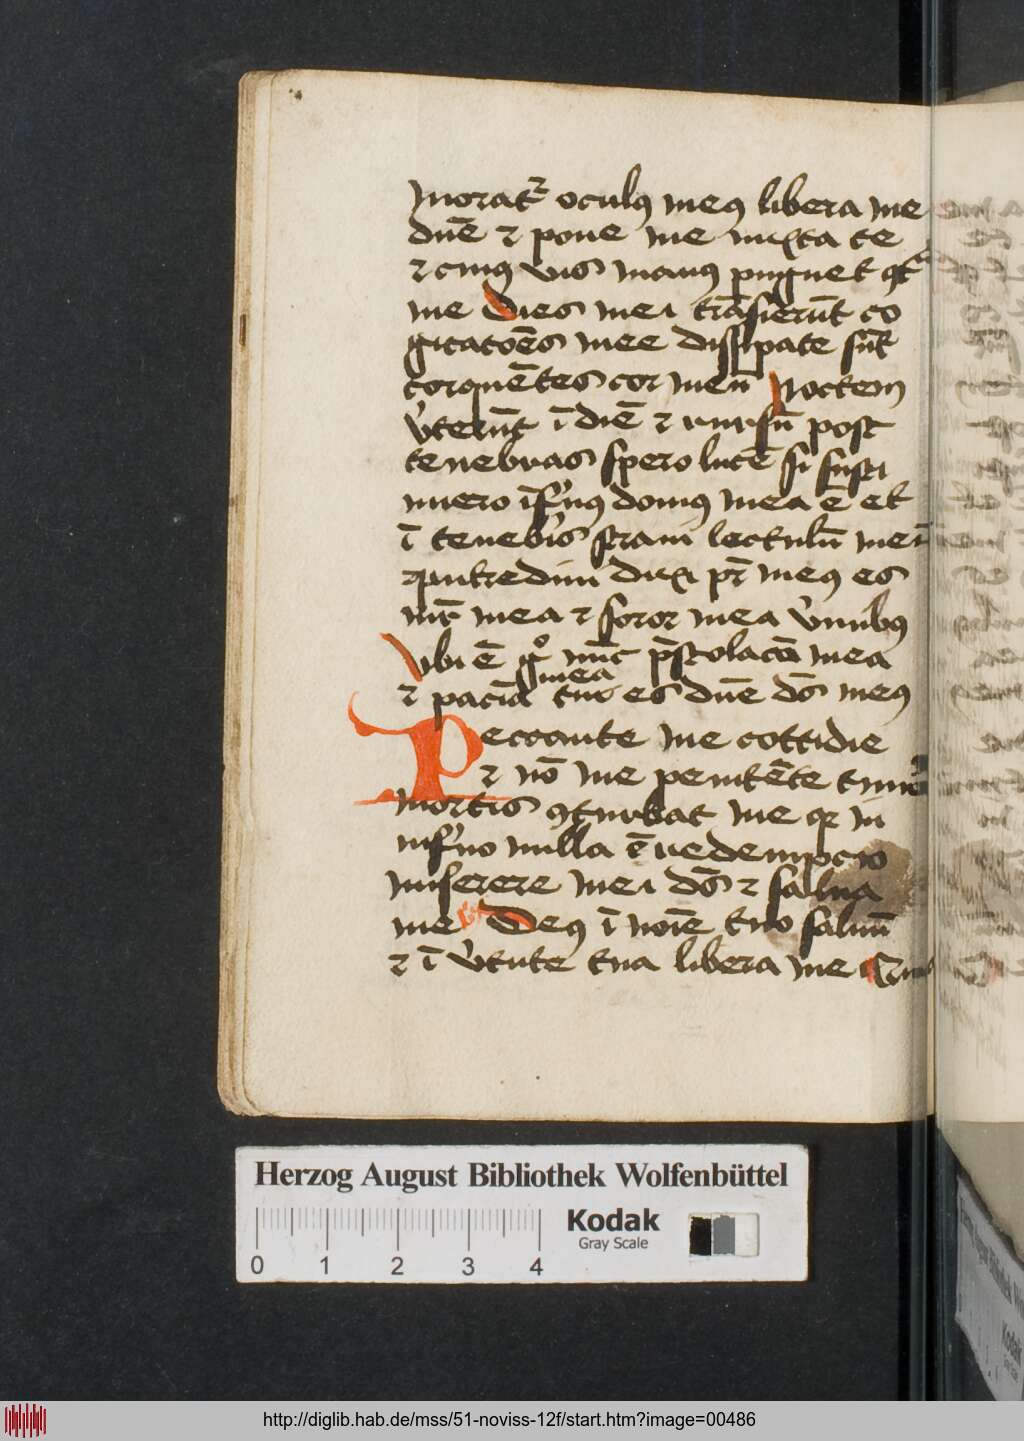 moratᷣ oculꝯ meꝯ libera me
dn̄e ⁊ pone me iuxta te
⁊ cuiꝯ vis manꝯ pugnet ꝯt̄
me Dies mei trāsierūt co
gitatōēs mee dissipate sūt
torquētes cor meū Noctem
v̓terūt ī diē ⁊ rursū post
tenebras spero lucē si susti
nuero īfˀnꝯ domꝯ mea ē et
ī tenebˀis straui lectulū meū
putredini dixi pr̄ meꝯ es
mr̄ mea ⁊ soror mea v̓mibꝯ
Vbi ē gͦ nūc p̄stolacō mea
mea
⁊ paciā tu es dn̄e ds̄ meꝯ
Peccante me cottidie
⁊ nō me penitēte timor
mortis ꝯturbat me qꝛ in
infˀno nulla ē redempcio
miserere mei ds̄ ⁊ salua
me Deꝯ ī noīe tuo saluū
⁊ ī v̓tute tua libera me
Herzog August Bibliothek Wolfenbüttel
Kodak
Gray Scale
0 1 2 3 4
http://diglib.hab.de/mss/51-noviss-12f/start.htm?image=00486